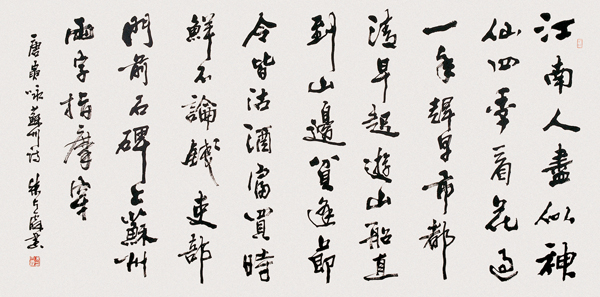 江南人盡似神
仙四季看花過
一年趕早市都
清早起遊山船直
到山邊貧逢節
令皆沽酒富買時
鮮不論錢吏部
門前石碑上蘇州
兩字指摩穿
唐寅咏蘇州诗